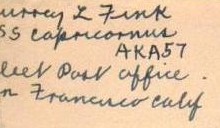 urrey L Fink
SS Capricornus
AKA57
leet Post office.
n Francisco calif